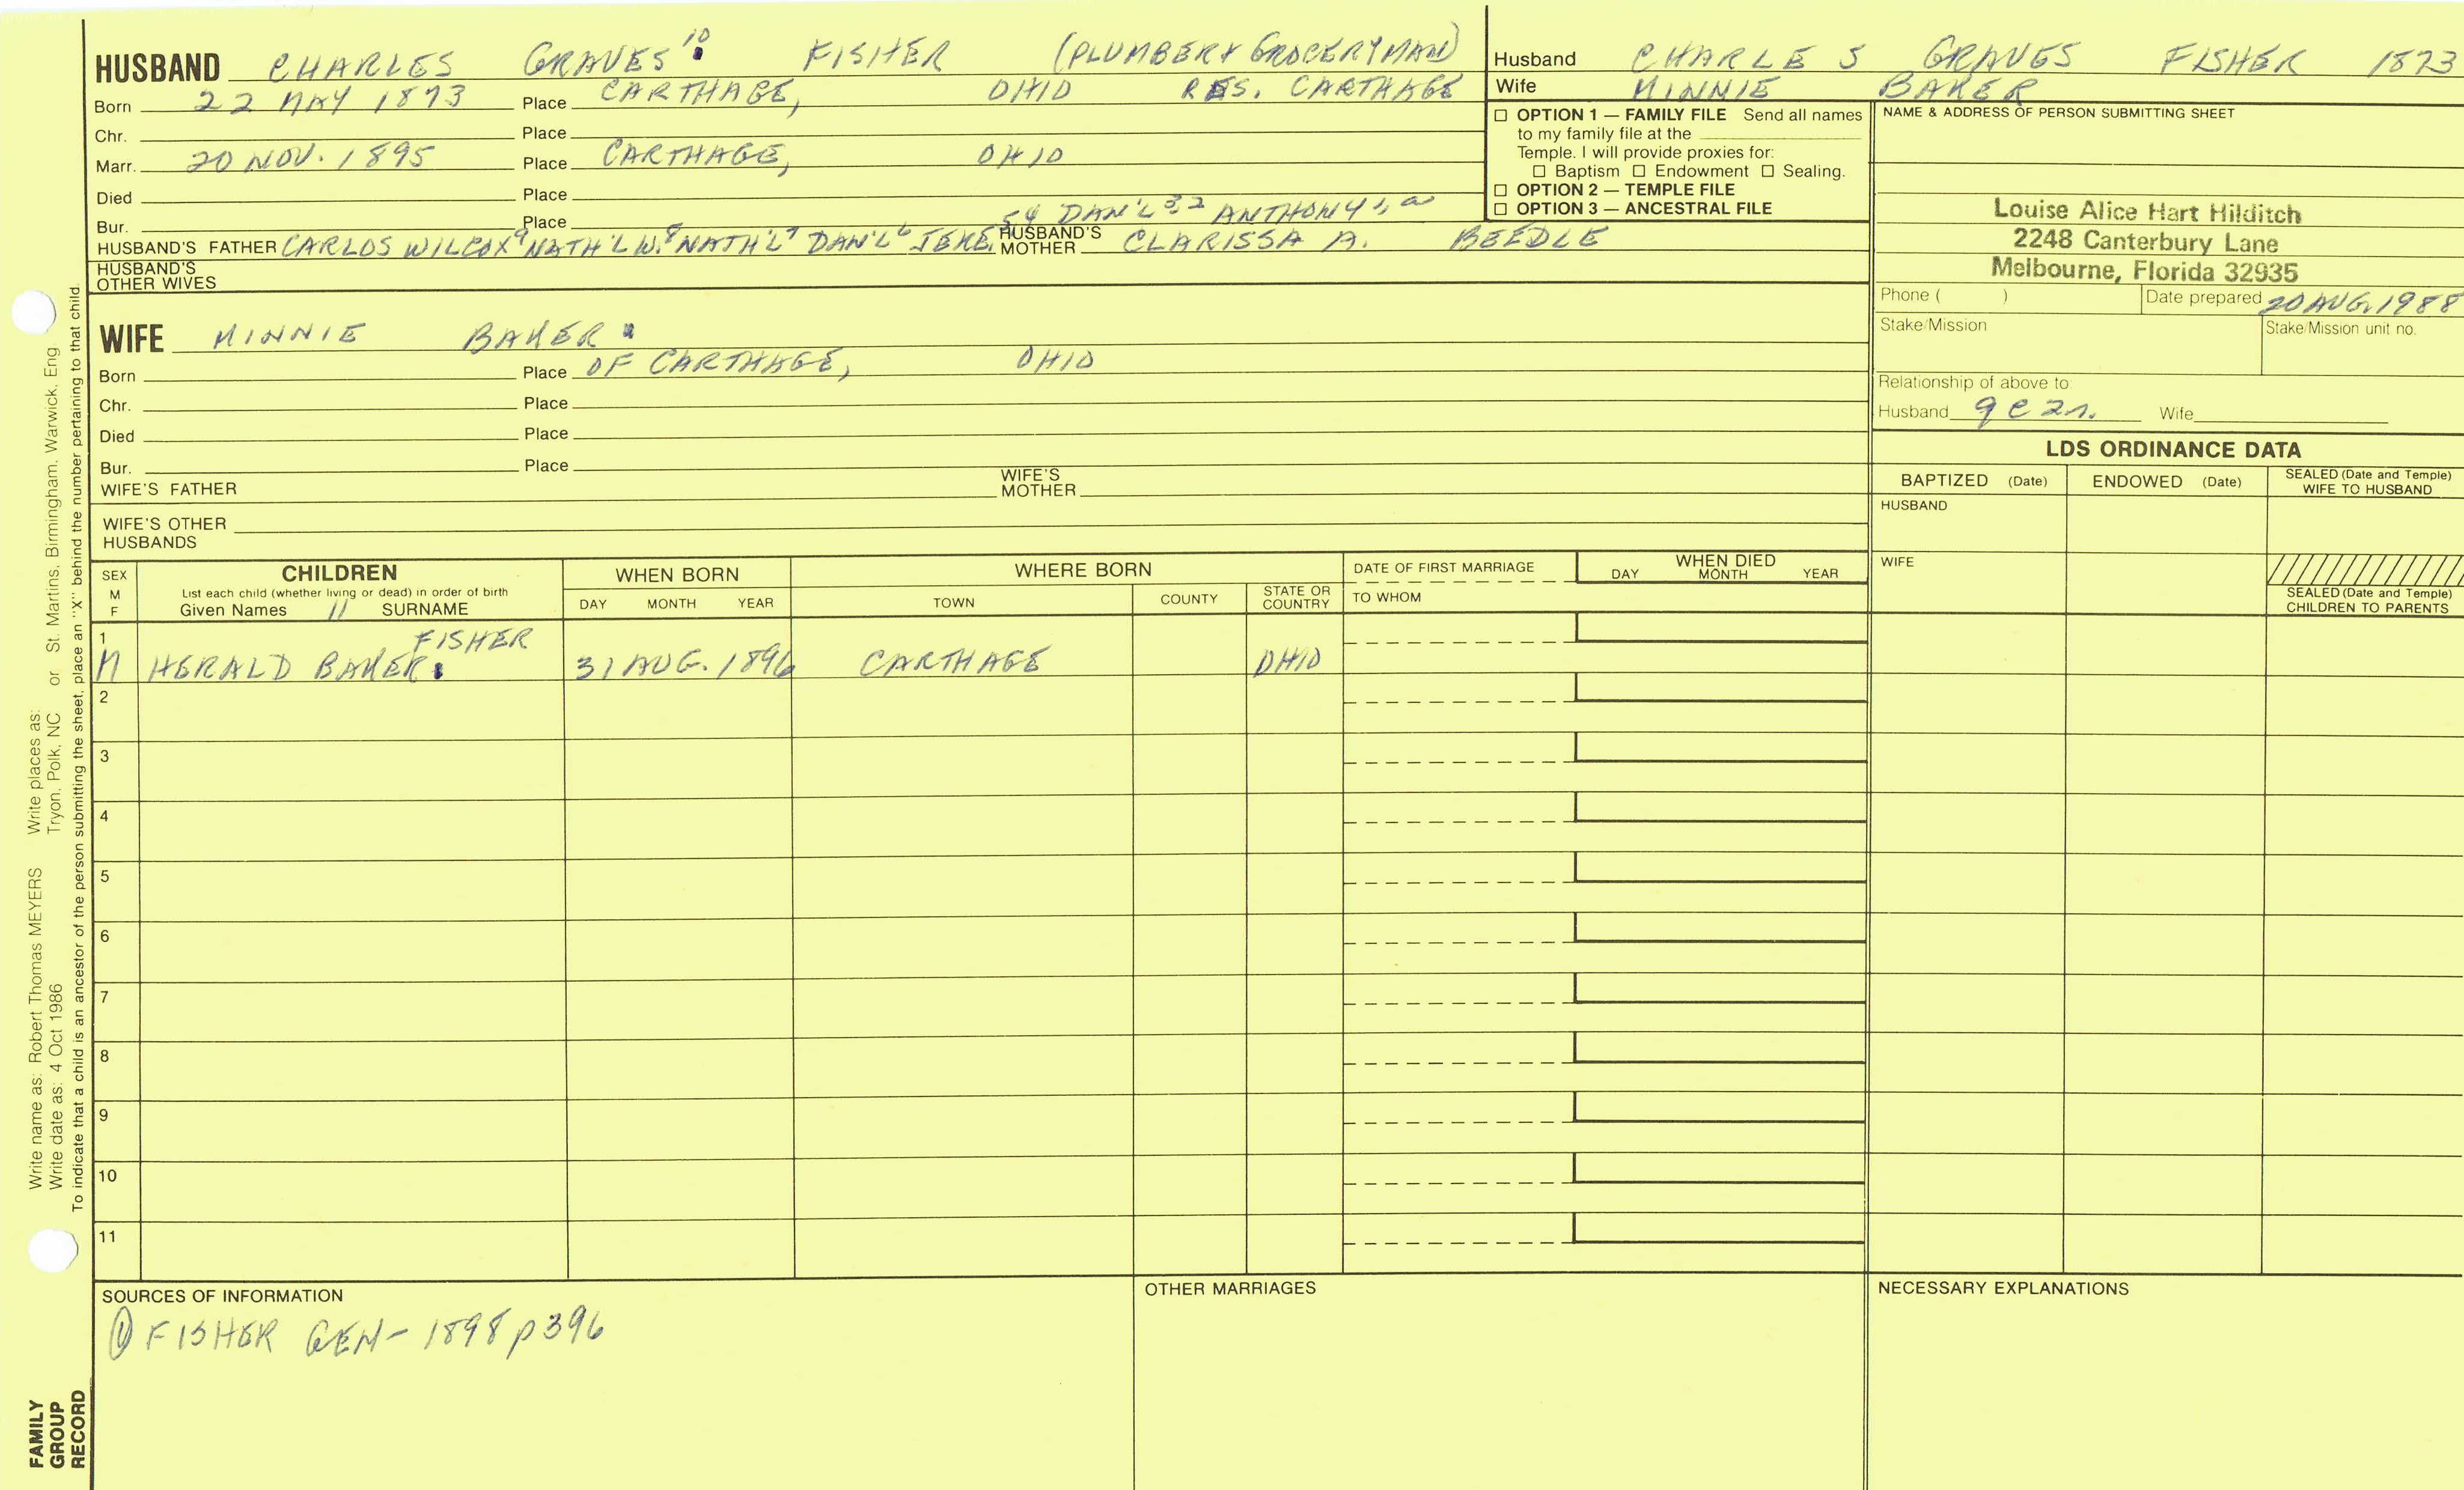 HUSBAND CHARLES GRAVES 10 FISHER (PLUMBER & GROCERYMAN)
Born 22 MAY 1873 Place CARTHAGE, OHIO RES. CARTHAGE
Chr. Place
Marr. 20 NOV. 1895 Place CARTHAGE, OHIO
Died Place
Bur. Place 54 DAN'L 32 ANTHONY 1,
HUSBAND'S FATHER CARLOS WILCOX 9 NATH'L W. 8 NATH'L 7 DAN'L 6 JERE. HUSBAND'S MOTHER CLARISSA A. BEEDLE
HUSBAND'S OTHER WIVES
WIFE MINNIE BAKER
Born Place OF CARTHAGE, OHIO
Chr. Place
Died Place
Bur. Place
WIFE'S FATHER WIFE'S MOTHER
WIFE'S OTHER HUSBANDS
Husband CHARLES GRAVES FISHER 1873
Wife MINNIE BAKER
☐ OPTION 1 — FAMILY FILE Send all names
to my family file at the
Temple. I will provide proxies for:
☐ Baptism ☐ Endowment ☐ Sealing.
☐ OPTION 2 — TEMPLE FILE
☐ OPTION 3 — ANCESTRAL FILE
NAME & ADDRESS OF PERSON SUBMITTING SHEET
Louise Alice Hart Hilditch
2248 Canterbury Lane
Melbourne, Florida 32935
Phone ( ) Date prepared 20 AUG. 1988
Stake/Mission Stake/Mission unit no.
Relationship of above to:
Husband 9 C 2r. Wife
LDS ORDINANCE DATA
BAPTIZED (Date) ENDOWED (Date) SEALED (Date and Temple) WIFE TO HUSBAND
HUSBAND
WIFE
SEALED (Date and Temple) CHILDREN TO PARENTS
SEX M F
CHILDREN
List each child (whether living or dead) in order of birth
Given Names 11 SURNAME
WHEN BORN
DAY MONTH YEAR
WHERE BORN
TOWN COUNTY STATE OR COUNTRY
DATE OF FIRST MARRIAGE
TO WHOM
WHEN DIED
DAY MONTH YEAR
1 FISHER
M HERALD BAKER 31 AUG. 1896 CARTHAGE OHIO
2
3
4
5
6
7
8
9
10
11
SOURCES OF INFORMATION
① FISHER GEN- 1898 p396
OTHER MARRIAGES
NECESSARY EXPLANATIONS
Write name as: Robert Thomas MEYERS Write places as:
Write date as: 4 Oct 1986 Tryon, Polk, NC or St. Martins, Birmingham, Warwick, Eng
To indicate that a child is an ancestor of the person submitting the sheet, place an "X" behind the number pertaining to that child.
FAMILY
GROUP
RECORD